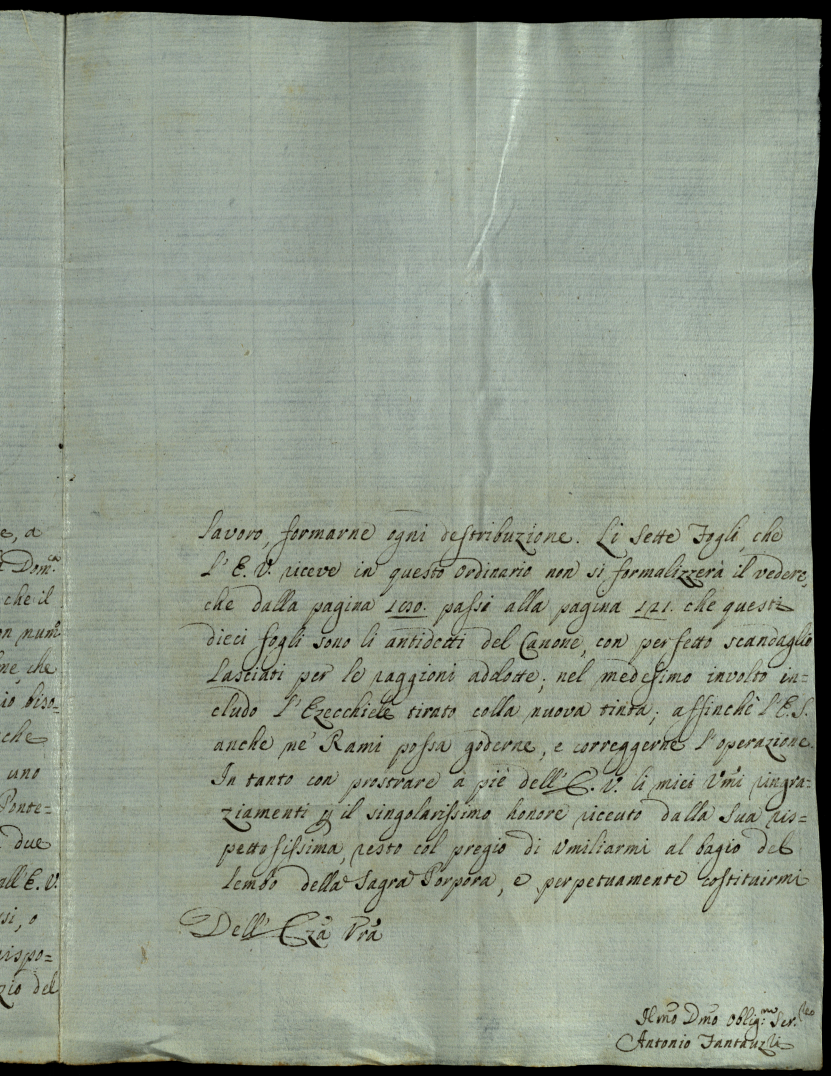 e, a
Dom.ca
che il
on num.
ne, che
io biso=
che
uno
Ponte=
due
all'E. V.
si, o
rispo=
zio del
lavoro, formarne ogni destribuzione. Li Sette Fogli, che
l'E. V. riceve in questo Ordinario non si formalizzerà il vedere,
che dalla pagina passi alla pagina 121. che questi
dieci fogli sono li antidetti del Canone, con perfetto scandaglio
lasciati per le raggioni addotte; nel medesimo involto in=
cludo l'Ezecchiele tirato colla nuova tinta; affinchè l'E. S.
anche ne' Rami possa goderne, e correggerne l'operazione.
In tanto con prostrare a piè dell'E. V. li miei Vmi ringra=
ziamenti p il singolarissimo honore riceuto dalla Sua ris=
pettosissima, resto col pregio di Vmiliarmi al bagio del
lembo della Sagra Porpora, e perpetuamente costituirmi
Dell'Eza Vra
Dmo Oblig.mo Ser.
Antonio Fantauzzi